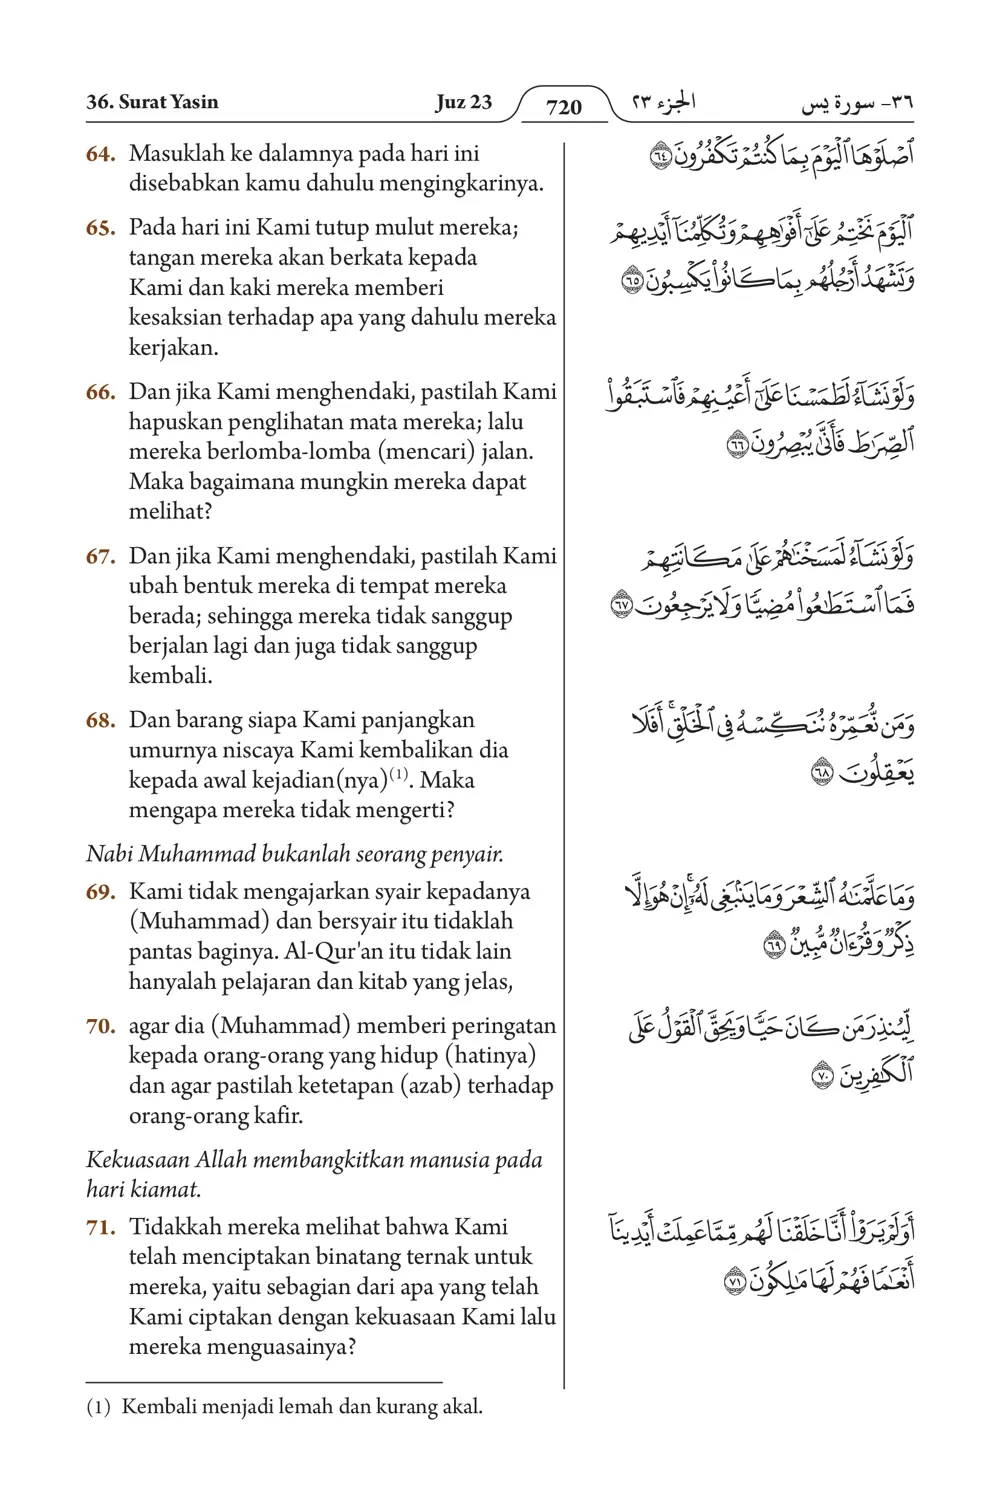 36. Surat Yasin
Juz 23
720
الجزء ٢٣
٣٦- سورة يس
64. Masuklah ke dalamnya pada hari ini
disebabkan kamu dahulu mengingkarinya.
65. Pada hari ini Kami tutup mulut mereka;
tangan mereka akan berkata kepada
Kami dan kaki mereka memberi
kesaksian terhadap apa yang dahulu mereka
kerjakan.
66. Dan jika Kami menghendaki, pastilah Kami
hapuskan penglihatan mata mereka; lalu
mereka berlomba-lomba (mencari) jalan.
Maka bagaimana mungkin mereka dapat
melihat?
67. Dan jika Kami menghendaki, pastilah Kami
ubah bentuk mereka di tempat mereka
berada; sehingga mereka tidak sanggup
berjalan lagi dan juga tidak sanggup
kembali.
68. Dan barang siapa Kami panjangkan
umurnya niscaya Kami kembalikan dia
kepada awal kejadian(nya)(1). Maka
mengapa mereka tidak mengerti?
Nabi Muhammad bukanlah seorang penyair.
69. Kami tidak mengajarkan syair kepadanya
(Muhammad) dan bersyair itu tidaklah
pantas baginya. Al-Qur'an itu tidak lain
hanyalah pelajaran dan kitab yang jelas,
70. agar dia (Muhammad) memberi peringatan
kepada orang-orang yang hidup (hatinya)
dan agar pastilah ketetapan (azab) terhadap
orang-orang kafir.
Kekuasaan Allah membangkitkan manusia pada
hari kiamat.
71. Tidakkah mereka melihat bahwa Kami
telah menciptakan binatang ternak untuk
mereka, yaitu sebagian dari apa yang telah
Kami ciptakan dengan kekuasaan Kami lalu
mereka menguasainya?
(1) Kembali menjadi lemah dan kurang akal.
ٱصۡلَوۡهَا ٱلۡيَوۡمَ بِمَا كُنتُمۡ تَكۡفُرُونَ ٦٤
ٱلۡيَوۡمَ نَخۡتِمُ عَلَىٰٓ أَفۡوَٰهِهِمۡ وَتُكَلِّمُنَآ أَيۡدِيهِمۡ
وَتَشۡهَدُ أَرۡجُلُهُم بِمَا كَانُواْ يَكۡسِبُونَ ٦٥
وَلَوۡ نَشَآءُ لَطَمَسۡنَا عَلَىٰٓ أَعۡيُنِهِمۡ فَٱسۡتَبَقُواْ
ٱلصِّرَٰطَ فَأَنَّىٰ يُبۡصِرُونَ ٦٦
وَلَوۡ نَشَآءُ لَمَسَخۡنَٰهُمۡ عَلَىٰ مَكَانَتِهِمۡ
فَمَا ٱسۡتَطَٰعُواْ مُضِيّٗا وَلَا يَرۡجِعُونَ ٦٧
وَمَن نُّعَمِّرۡهُ نُنَكِّسۡهُ فِي ٱلۡخَلۡقِۚ أَفَلَا
يَعۡقِلُونَ ٦٨
وَمَا عَلَّمۡنَٰهُ ٱلشِّعۡرَ وَمَا يَنۢبَغِي لَهُۥٓۚ إِنۡ هُوَ إِلَّا
ذِكۡرٞ وَقُرۡءَانٞ مُّبِينٞ ٦٩
لِّيُنذِرَ مَن كَانَ حَيّٗا وَيَحِقَّ ٱلۡقَوۡلُ عَلَى
ٱلۡكَٰفِرِينَ ٧٠
أَوَلَمۡ يَرَوۡاْ أَنَّا خَلَقۡنَا لَهُم مِّمَّا عَمِلَتۡ أَيۡدِينَآ
أَنۡعَٰمٗا فَهُمۡ لَهَا مَٰلِكُونَ ٧١